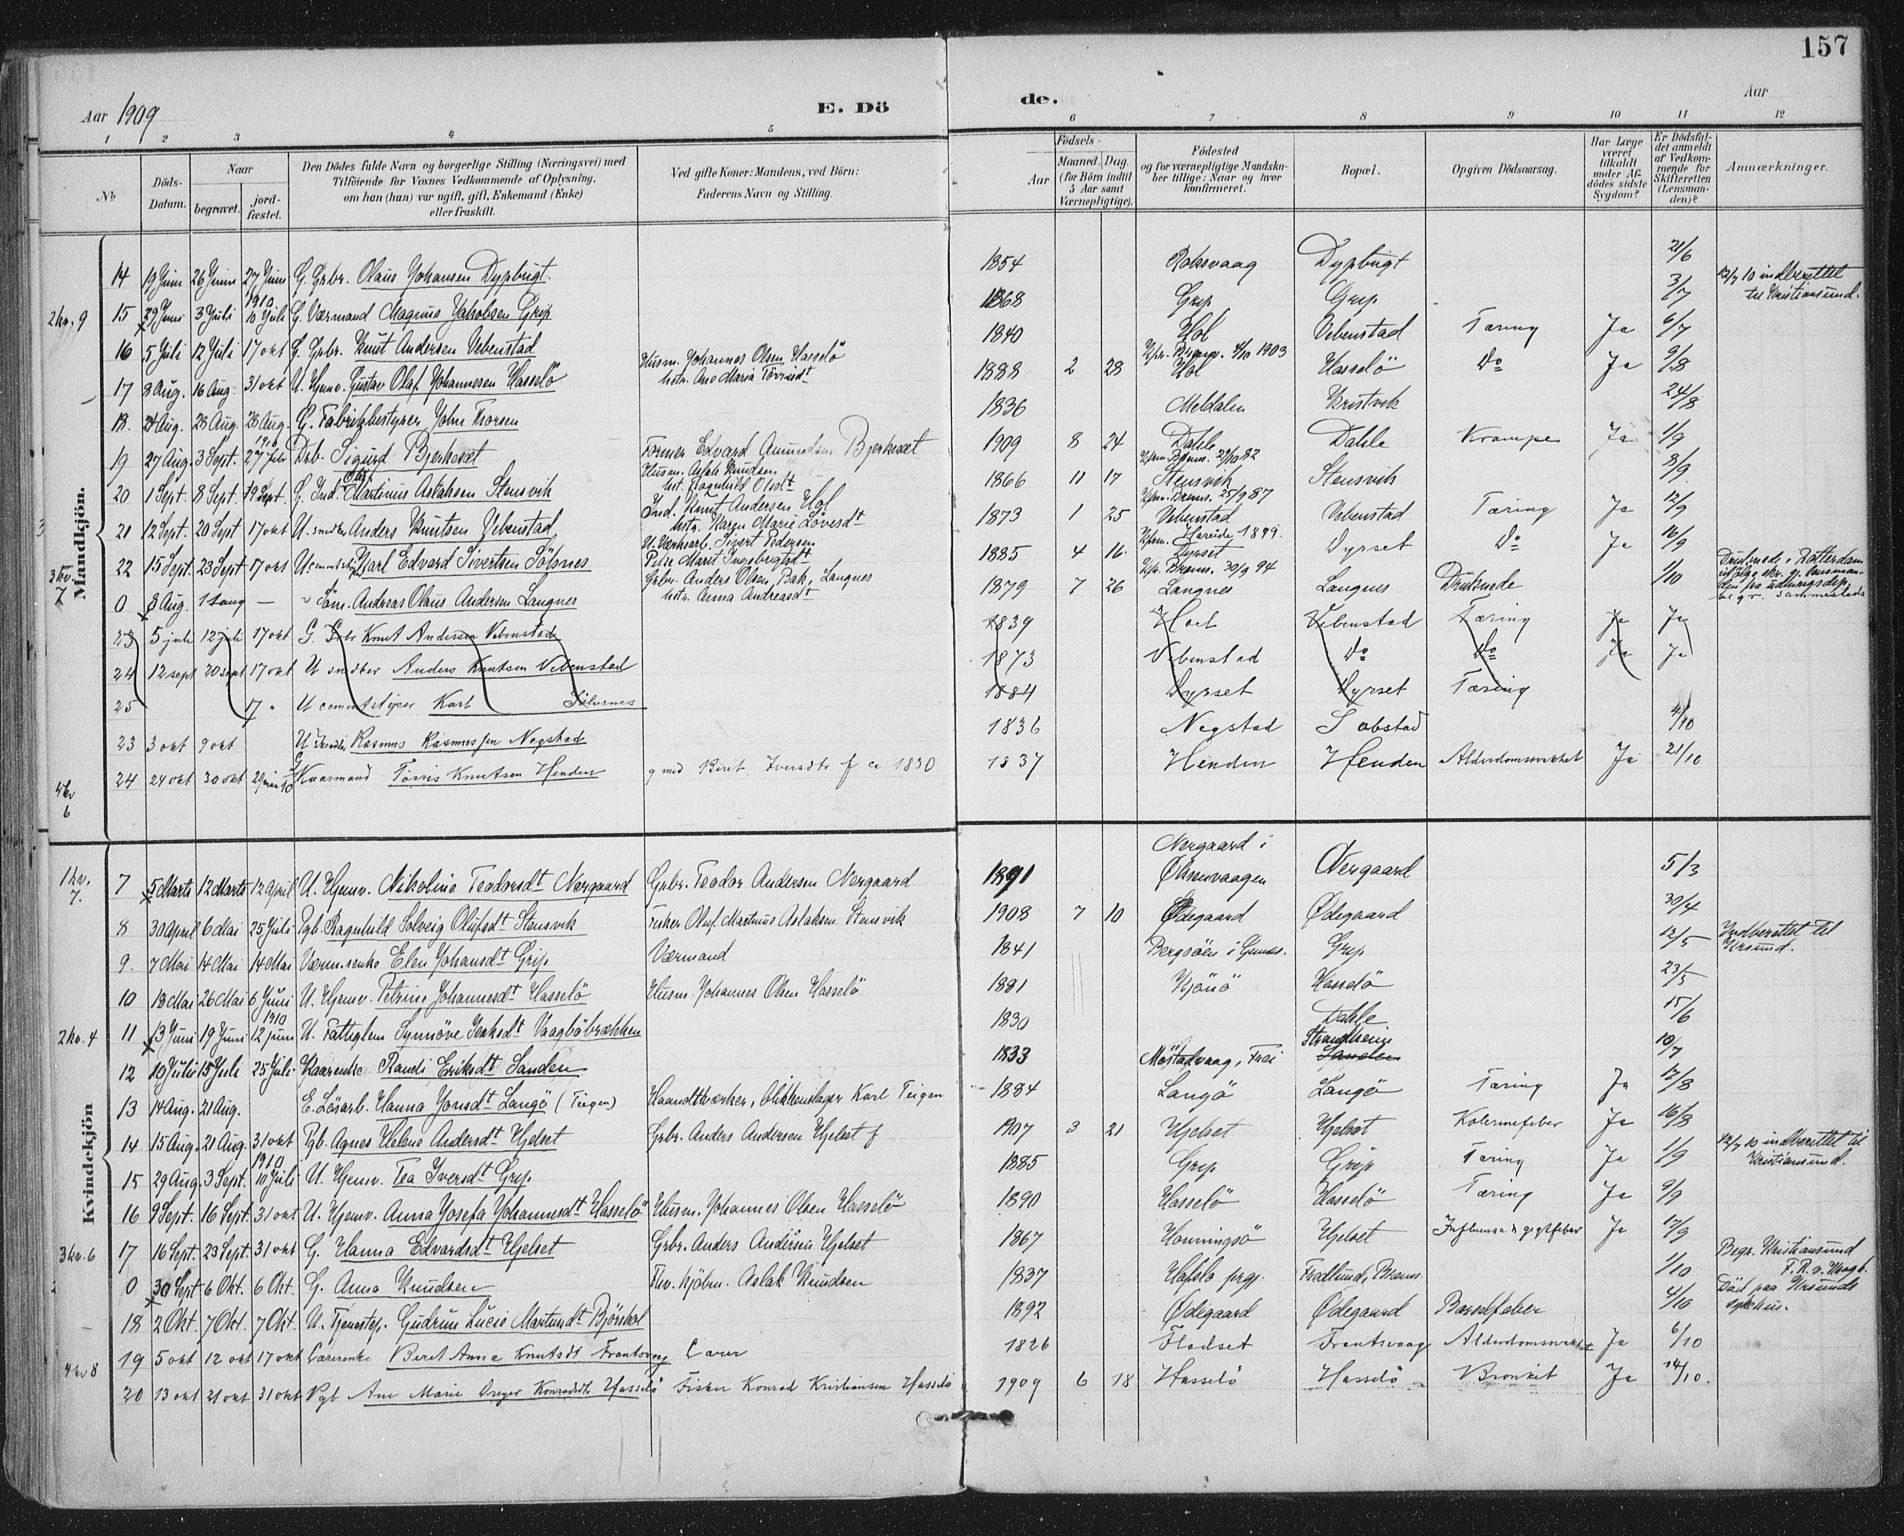 157
Aar 1909 E. Dö de. Aar
1 2 3 4 5 6 7 8 9 10 11 12
No
Döds-Datum.
Naar begravet. jordfæstet.
Den Dödes fulde Navn og borgerlige Stilling (Næringsvei) med Tilföiende for Voxnes Vedkommende af Oplysning, om han (hun) var ugift, gift, Enkemand (Enke) eller fraskilt.
Ved gifte Koner: Mandens, ved Börn: Faderens Navn og Stilling.
Födsels- Aar Maaned. Dag. (for Börn indtil 5 Aar samt Værnepligtige).
Födested og for værnepligtige Mandskaber tillige: Naar og hvor konfirmeret.
Bopæl.
Opgiven Dödsaarsag.
Har Læge været tilkaldt under Afdödes sidste Sygdom?
Er Dödsfaldet anmeldt af Vedkommende for Skifteretten (Lensmanden)?
Anmærkninger.
Mandkjön.
14 19 Juni 26 Juni 27 Juni G. Grbr. Olaus Johansen Dypbugt. 1854 Roksvaag Dypbugt 21/6
2 kv. 9 15 29 Juni 3 Juli 1910 10 Juli G. Værmand Magnus Jakobsen Grip 1868 Grip Grip 3/7 12/7 10 indberettet til Kristiansund.
16 5 Juli 12 Juli 17 okt G. Grbr. Knut Andersen Vebenstad 1840 Hol Vebenstad Tæring Ja 6/7
17 8 Aug. 16 Aug. 31 okt U. Hjmv. Gustav Olaf Johannesen Hasselö Husm. Johannes Olsen Hasselö 1888 2 28 Hol Hasselö Do Ja 9/8
18. 21 Aug. 28 Aug. 28 Aug. G. Fabrikbestyrer John Thorsen 1836 Meldalen Kristvik 24/8
19 27 Aug. 3 Sept. 1910 Drb. Sigurd Bjerkevet Former Edvard Amundsen Bjerkevet 1909 8 24 Dahle Dahle Krampe Ja 1/9
20 1 Sept. 8 Sept. 19 Sept. G. Ind. Olaf Martinus Aslaksen Stensvik Husm. Aslak Knudsen hst. Ragnhild Olsdt 1866 11 17 Stensvik Stensvik 8/9.
21 12 Sept. 20 Sept 17 okt U. snedker Anders Knutsen Vebenstad Ind. Knut Andersen Hol hstr. Karen Marie 1873 1 25 Vebenstad Vebenstad Tæring Ja 12/9
22 15 Sept. 23 Sept 17 okt U. Karl Edvard Sivertsen Sölsnes U. Værkarb. Sivert Pedersen Pike Marit Ingebrigtsdt 1885 4 16 Dyrset Dyrset Do Ja 16/9
3 kv. 7 0 8 Aug. — Söm. Andreas Olaus Andersen Langnes Grbr. Anders Olsen Bak, Langnes hstr. Anna Andreasdt 1879 7 26 Langnes Langnes Druknede 1/10 Druknede i Rotterdam
23 5 juli 12 juli 17 okt G. Grbr Knut Andersen Vebenstad 1839 Hoel Vebenstad Tæring Ja Ja
24 12 sept 20 sept 17 okt U snedker Anders Knutsen Vebenstad 1873 Vebenstad Do Do Ja Ja
25 17 " U cementstöper Karl Sölvsnes 1884 Dyrset Dyrset Tæring
23 3 okt 9 okt U Rasmus Rasmussen Negstad 1836 Negstad 4/10
4 kv 6 24 24 okt 30 okt Kaarmand Törris Knutsen Henden g med Beret Iversdtr f ca 1830 1837 Henden Henden Alderdomssvækket Ja 21/10
Kvindekjön
1 kv. 7. 7 5 Marts 12 Marts 12 April U. Hjmv. Nikoline Teodorsdt Nergaard Grbr. Teodor Andersen Nergaard 1891 Nergaard i Nergaard 5/3
8 30 April 6 Mai 25 Juli Pgb. Ragnhild Solveig Olufsdt Stensvik Fisker Oluf Martinus Aslaksen Stensvik 1908 7 10 Ødegaard Ødegaard 30/4
9. 7 Mai 14 Mai 14 Mai Værm.enke Elen Johansdt Grip Værmand 1841 Bergsöen i Grip 12/5 Indberettet til Krsund.
10 18 Mai 26 Mai 6 Juni U. Hjmv. Petrine Johannesdt Hasselö Husm. Johannes Olsen Hasselö 1881 Kjönö Hasselö 23/5
2 kv. 4 11 13 Juni 19 Juni 1910 12 juni U. Fattiglem Synnöve Isaksdt Vaagböbrækken 1830 Dahle 15/6
12 10 Juli 15 Juli 25 Juli Kaarenke Randi Eriksdt Sanden 1833 Möstadvaag, Frei Strandheim Sanden 10/7
13 14 Aug. 21 Aug. E. Lösarb. Hanna Jonsdt Langö (Teigen) Haandtværker, blikkenslager Karl Teigen 1884 Langö Langö Tæring Ja 17/8
14 15 Aug. 21 Aug. 31 okt Pgb. Agnes Helene Andersdt Hjelset Grbr. Anders Andersen Hjelset f 1907 3 21 Hjelset Hjelset Kolerinefeber Ja 16/8
15 29 Aug. 3 Sept. 1910 10 Juli U. Hjemv. Tea Iversdt Grip 1885 Grip Grip Tæring Ja 1/9 12/7 10 indberettet til Kristiansund.
16 9 Sept. 16 Sept. 31 okt U. Hjemv. Anna Josefa Johannesdt Hasselö Husm. Johannes Olsen Hasselö 1890 Hasselö Hasselö Tæring Ja 9/9
3 kv. 6 17 16 Sept. 23 Sept. 31 okt G. Hanna Edvardsdt Hjelset Grbr. Anders Andersen Hjelset 1867 Honningsö Hjelset Influensa & gigtfeber Ja 17/9
0 30 Sept 6 Okt. 6 Okt. G. Anna Knudsen Fhv. Kjöbm. Aslak Knudsen 1837 Hafslo prgj. 1/10 Begr. Kristiansund
18 2 Okt. 7 Okt. 7 Okt. U. Tjenstep. Gudrun Lucie Martinsdt Björshol 1892 Ødegaard Ødegaard Barselfeber 4/10 Död paa Krsunds sykehus.
4 kv 8 19 5 okt 12 okt 17 okt Lærerenke Beret Anna Knutsdt Frantsvaag Lærer 1826 Fladset Frantsvaag Alderdomssvækket Ja 6/10
20 13 okt 21 okt 31 okt Pgb Ane Marie Konradsdt Hasselö Fisker Konrad Kristiansen Hasselö 1909 6 18 Hasselö Hasselö Bronkit Ja 14/10.